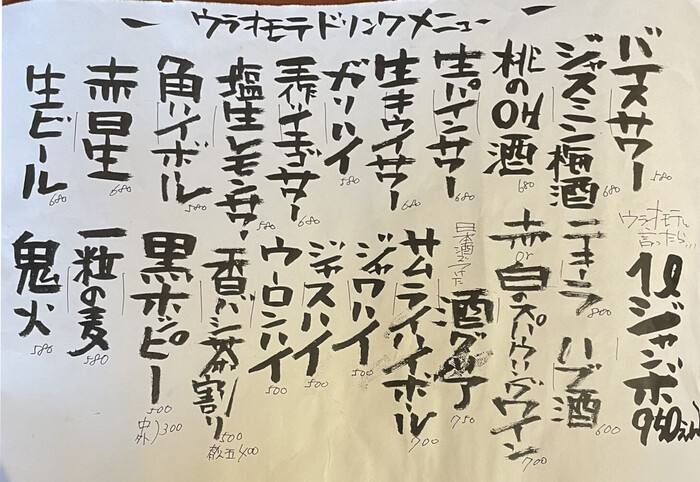 ウラオモテドリンクメニュー
バイスサワー
580
ジャスミン梅酒
680
桃のOH酒
680
生パインサワー
680
生キウイサワー
680
ガリハイ
580
手作りイチゴサワー
680
塩生レモンサワー
580
角ハイボール
580
赤星
680
生ビール
680
ウラオモテに
言ったら...
1ℓジャンボ
950えん
800
ハブ酒
600
赤or白のスパークリングワイン
700
日本酒につけた
酒グリア
750
サムライハイボール
700
ジャワハイ
500
ジャスハイ
500
ウーロンハイ
500
香バシ茶割り
500
400
黒ホッピー
500
中外)300
一粒の麦
580
鬼火
580